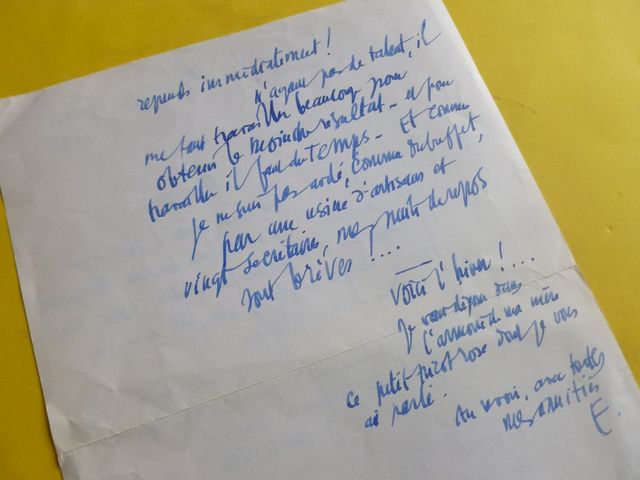 reponds immédiatement !
N'ayant pas de talent, il
me faut travailler beaucoup pour
obtenir le moindre résultat - et pour
travailler il faut du temps - Et comme
je ne suis pas aidé, comme Dubuffet,
par une usine d'artisans et
vingt secrétaires, mes nuits de repos
sont brèves ! ...
Voici l'hiver ! ...
Je vous dans
l'armoire de ma mère
ce petit rose dont je vous
ai parlé.
Au revoir, avec toutes
mes amitiés
E.